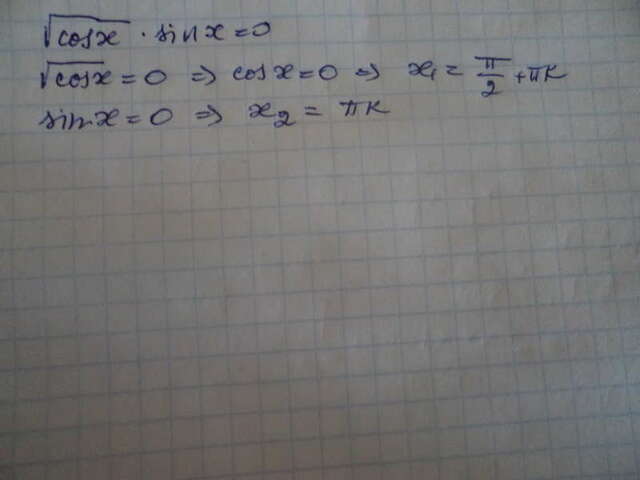 √cosx · sinx=0
√cosx = 0 ⇒ cosx=0 ⇒ x₁ = π/2 + πk
sinx=0 ⇒ x₂ = πk